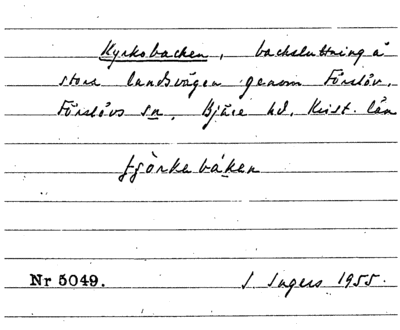 Kyrkobacken, backsluttning å
stora landsvägen genom Förslöv,
Förslövs sn, Bjäre hd, Krist. län
Nr 5049. I. Ingers 1955.